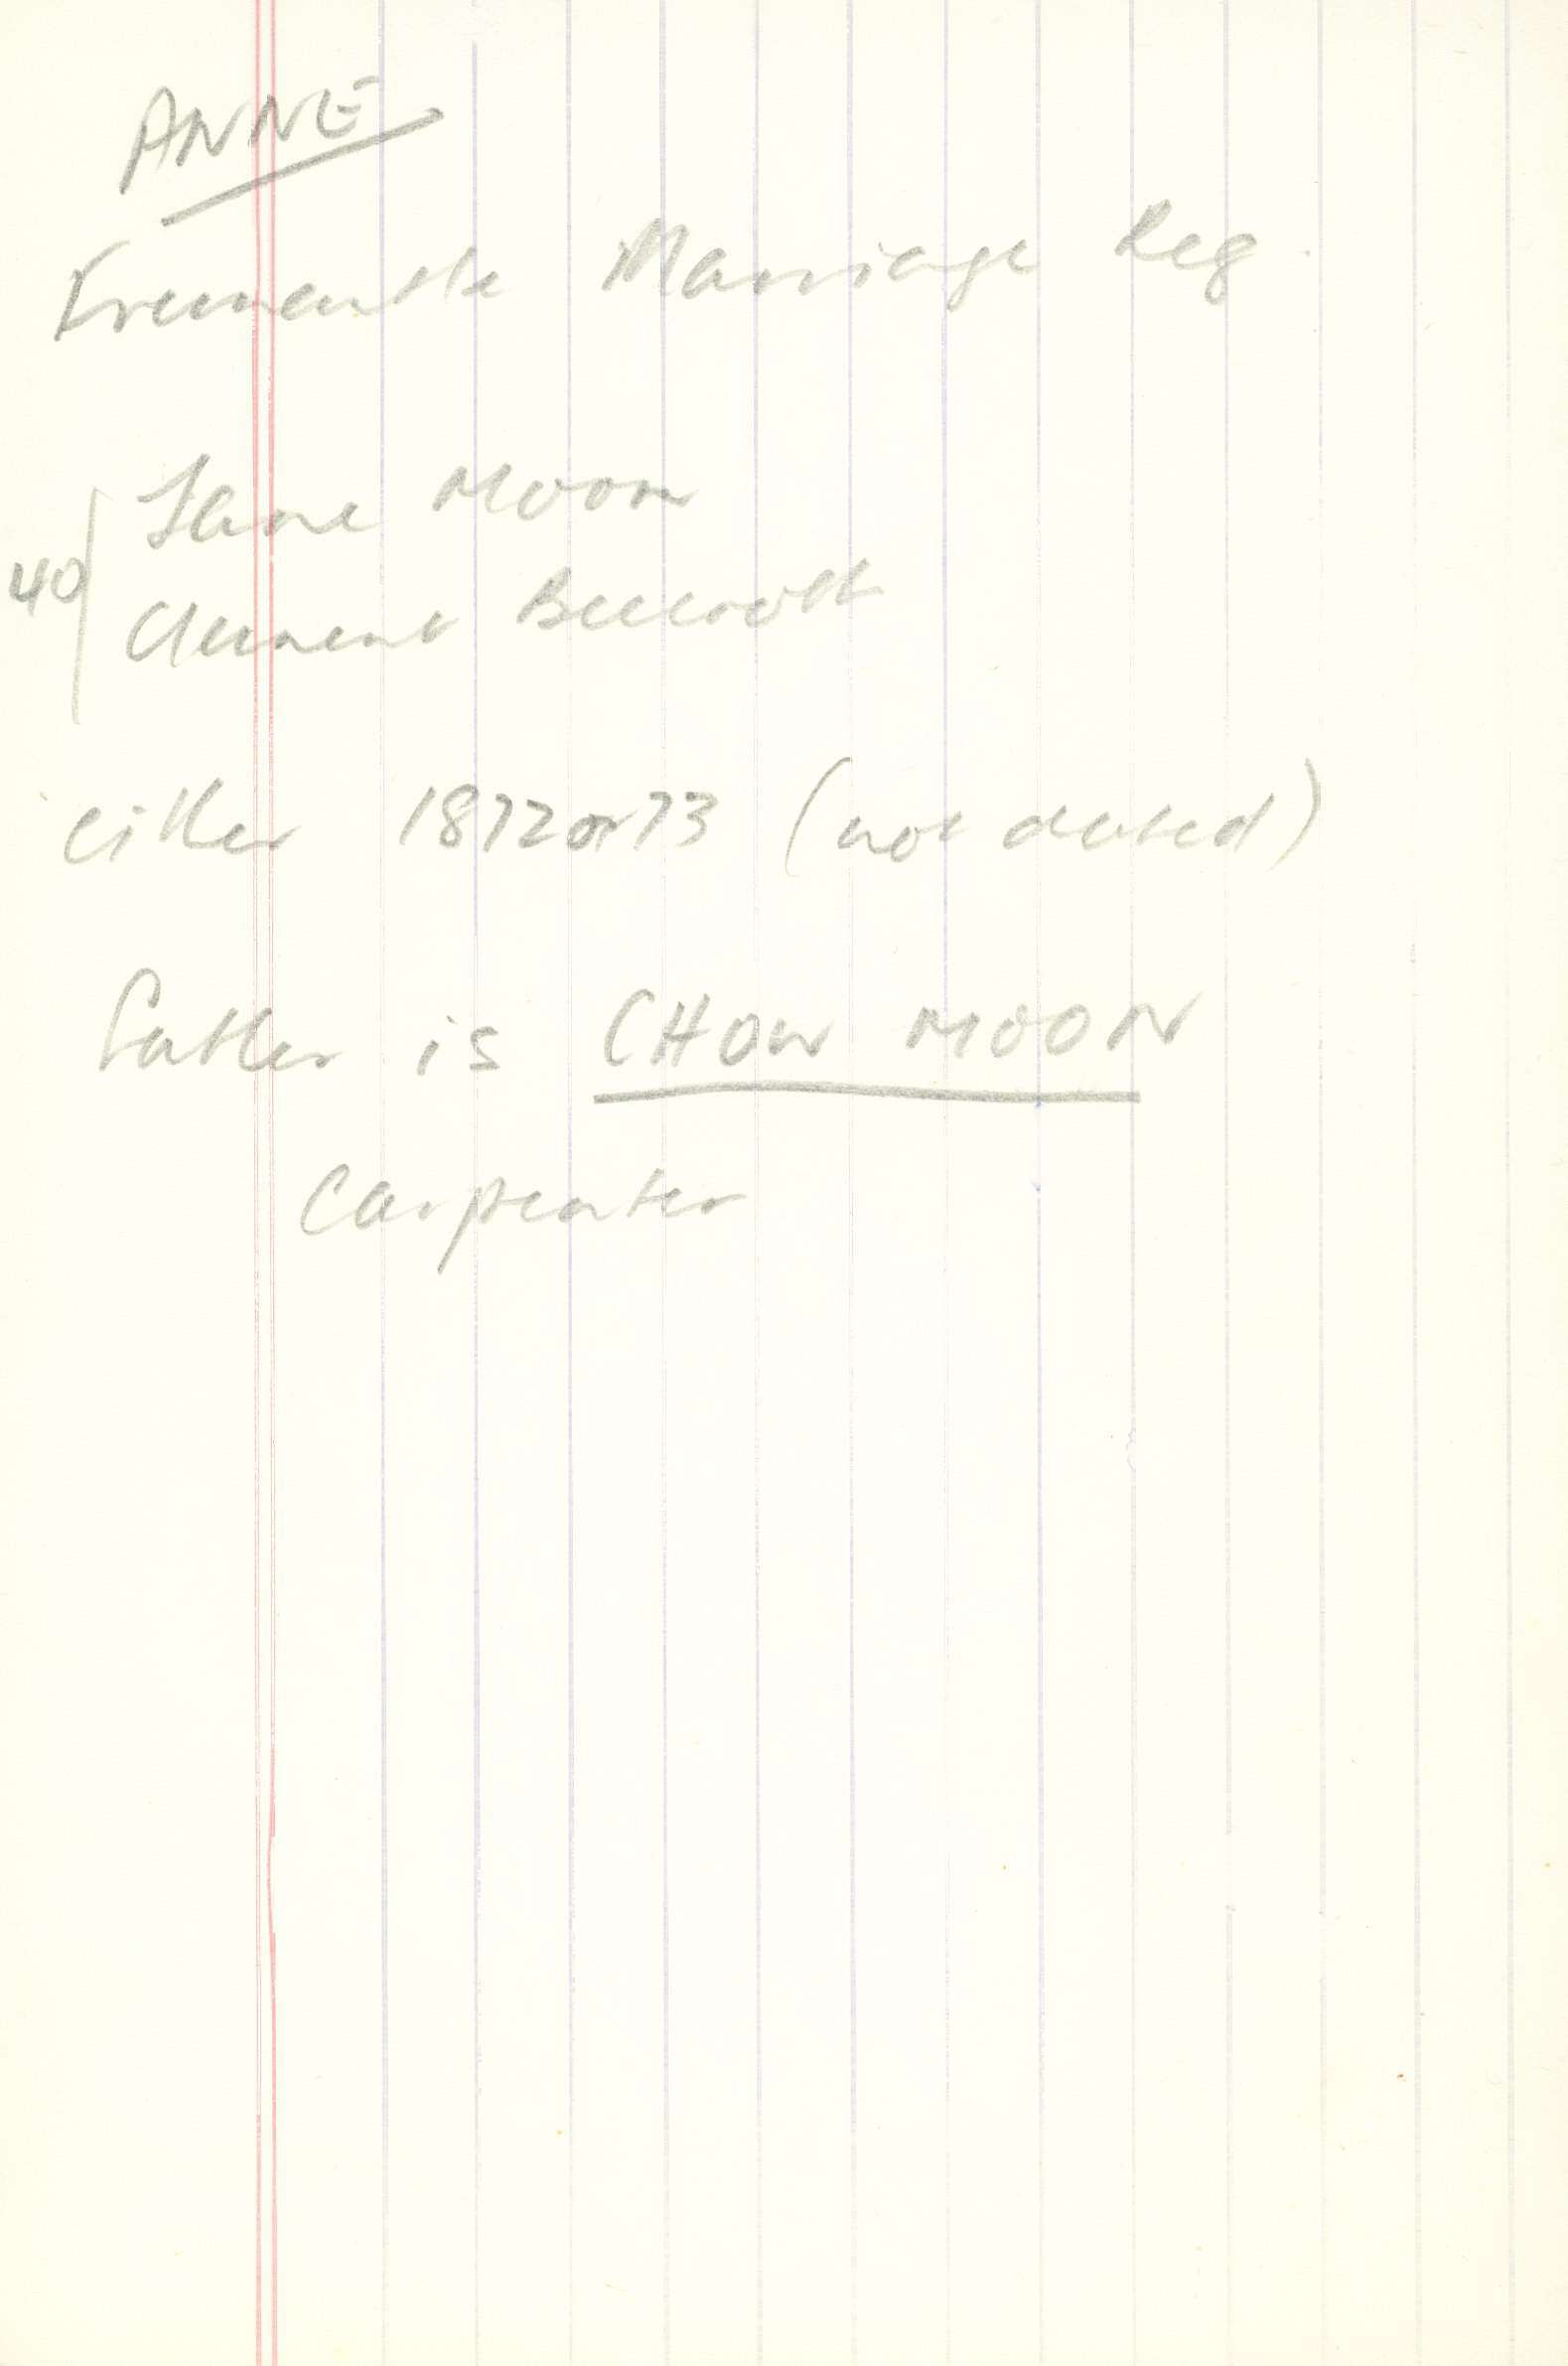 ANNE
Fremantle Marriage Reg.
Jane Moon
40
Clement Beecroft
either 1872 or 73 (not dated)
father is CHOW MOON
Carpenter